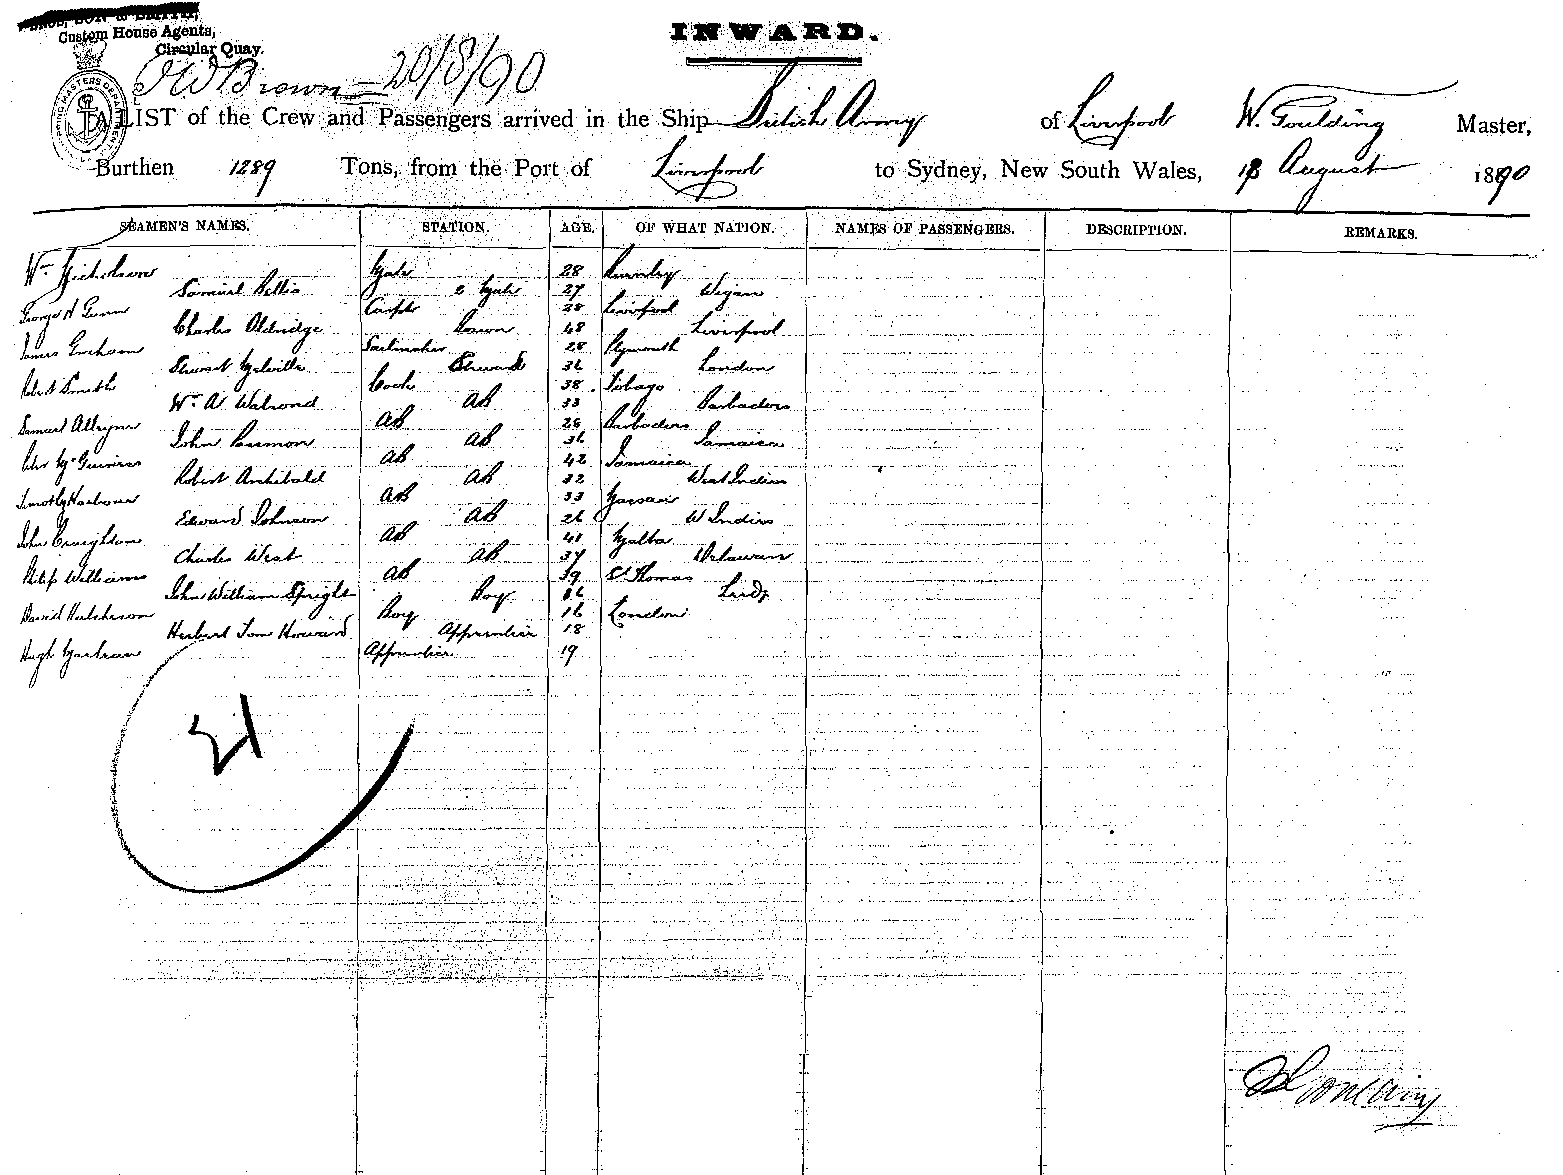 Custom House Agents,
Circular Quay.
INWARD.
J W Brown 20/8/90
A LIST of the Crew and Passengers arrived in the Ship British Army of Liverpool W. Goulding Master,
Burthen 1289 Tons, from the Port of Liverpool to Sydney, New South Wales, 18 August 1890
SEAMEN'S NAMES. STATION. AGE. OF WHAT NATION. NAMES OF PASSENGERS. DESCRIPTION. REMARKS.
Wm Nicholson Mate 28 Burnley
Samuel Bellis 2 Mate 27 Wigan
George H Gunn Carptr 28 Liverpool
Charles Oldridge Bosun 48 Liverpool
James Sailmaker 28 Plymouth
Stewart Melville Steward 36 London
Robert Smith Cook 38 Tobago
Wm A Walrond AB 33 Barbados
Samuel Alleyne AB 26 Barbados
John AB 36 Jamaica
AB 42 Jamaica
Robert Archibald AB 32 West Indies
Timothy AB 33 Nassau
Edward Johnson AB 26 W Indies
John Creighton AB 41 Malta
Charles West AB 37 Delaware
Philip Williams AB 39 St Thomas
John William Spright Boy 16 Leeds
David Hutcheson Boy 16 London
Herbert Tom Howard Apprentice 18
Hugh Apprentice 19
21
W Goulding